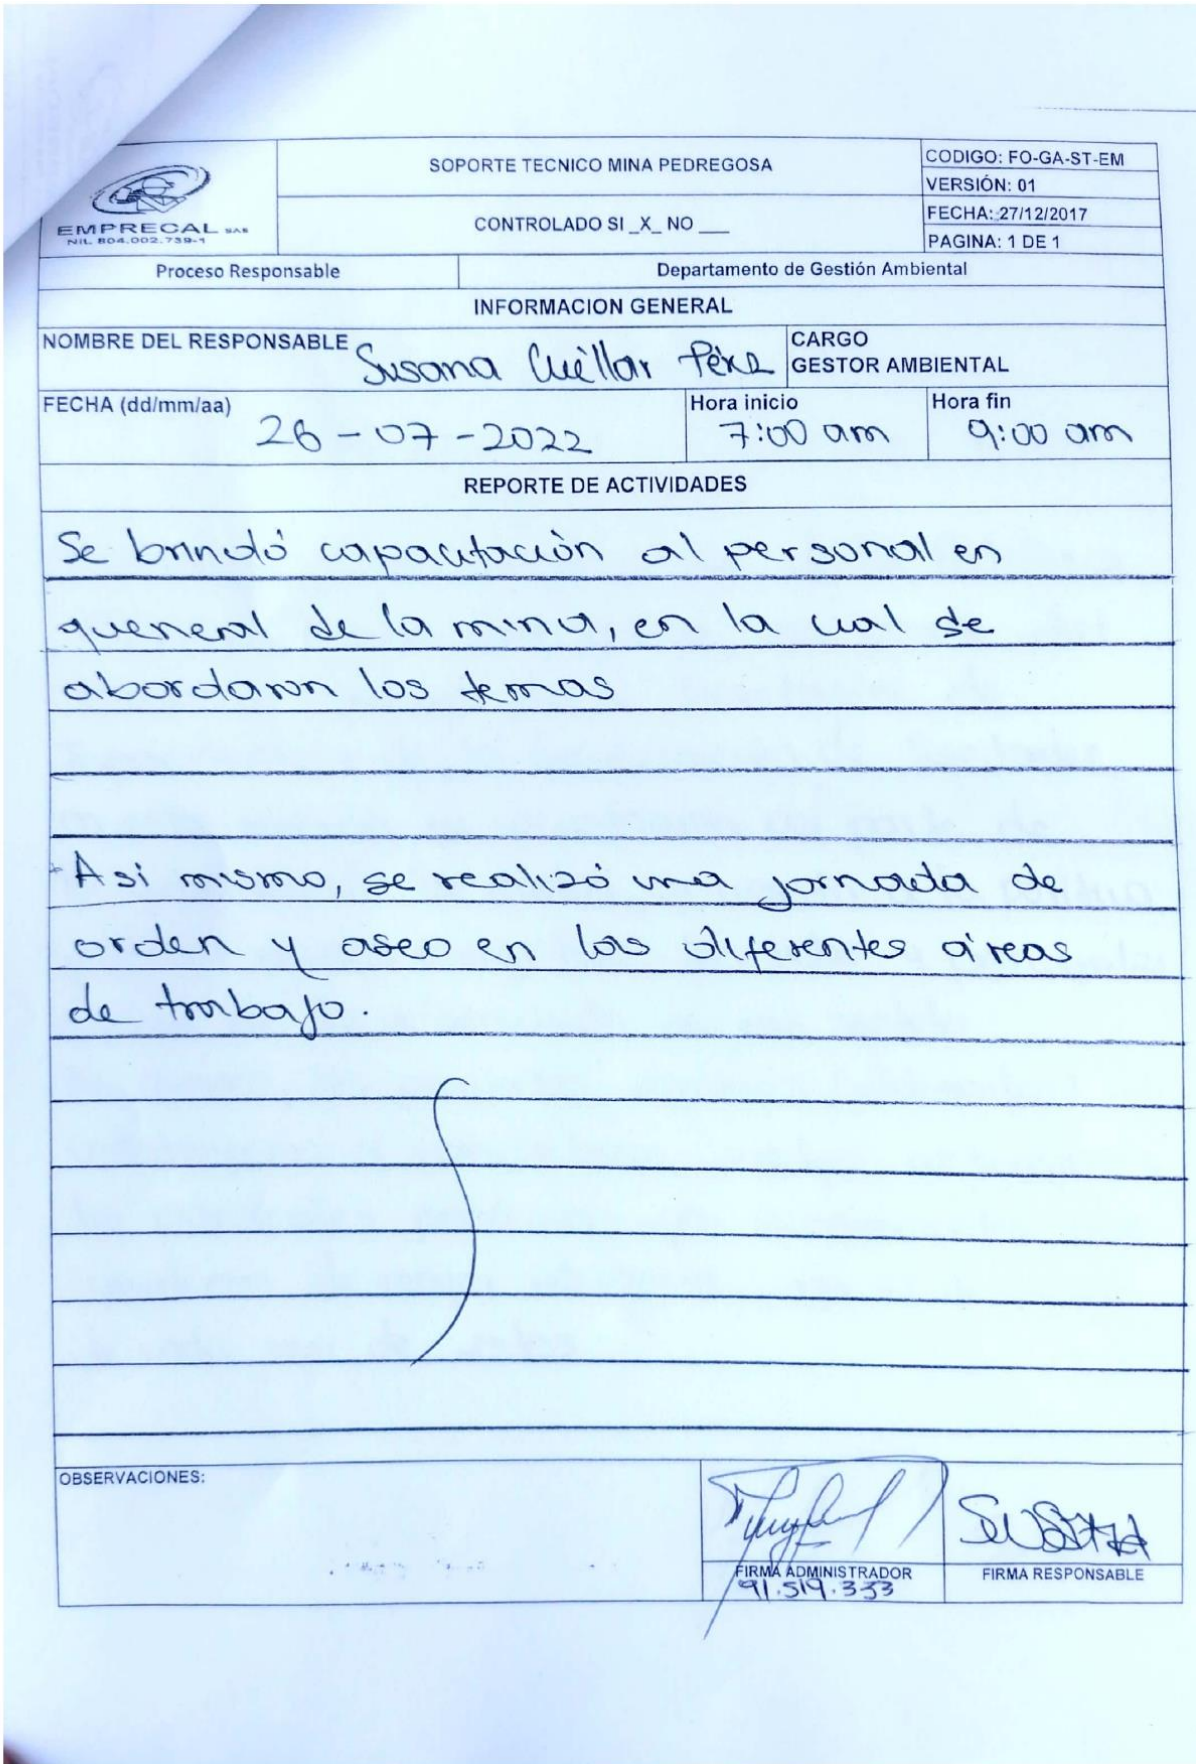 EMPRECAL SAS
NIL 804.002.739-1
SOPORTE TECNICO MINA PEDREGOSA
CONTROLADO SI _X_ NO ___
CODIGO: FO-GA-ST-EM
VERSIÓN: 01
FECHA: 27/12/2017
PAGINA: 1 DE 1
Proceso Responsable
Departamento de Gestión Ambiental
INFORMACION GENERAL
NOMBRE DEL RESPONSABLE Susana Cuéllar
CARGO
GESTOR AMBIENTAL
FECHA (dd/mm/aa) 26-07-2022
Hora inicio
7:00 am
Hora fin
9:00 am
REPORTE DE ACTIVIDADES
Se brindó capacitación al personal en
queneral de la mina, en la cual se
abordaron los temas
Asi mismo, se realizó una jornada de
orden y aseo en las diferentes áreas
de trabajo.
OBSERVACIONES:
FIRMA ADMINISTRADOR
91.519.333
FIRMA RESPONSABLE